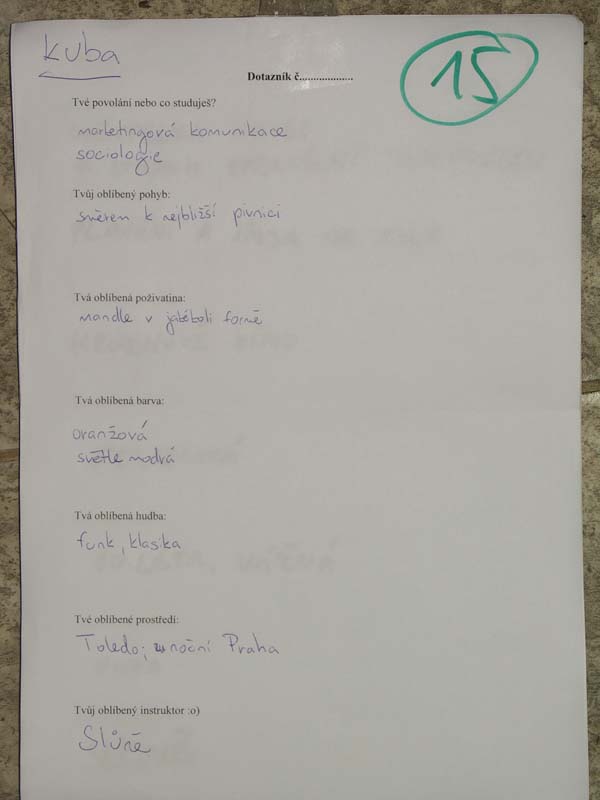 Kuba
15
Dotazník č...................
Tvé povolání nebo co studuješ?
marketingová komunikace
sociologie
Tvůj oblíbený pohyb:
směrem k nejbližší pivnici
Tvá oblíbená poživatina:
mandle v jakékoli formě
Tvá oblíbená barva:
oranžová
světle modrá
Tvá oblíbená hudba:
funk, klasika
Tvé oblíbené prostředí:
Toledo; noční Praha
Tvůj oblíbený instruktor :o)
Slůně